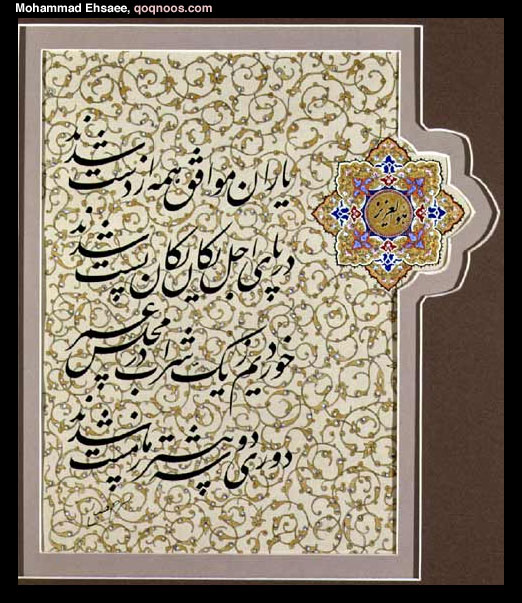 Mohammad Ehsaee, qoqnoos.com
هوالعزیز
یاران موافق همه از دست شدند
در پای اجل یکان یکان پست شدند
خوردیم ز یک شراب در مجلس عمر
دوری دو سه پیشتر ز ما مست شدند